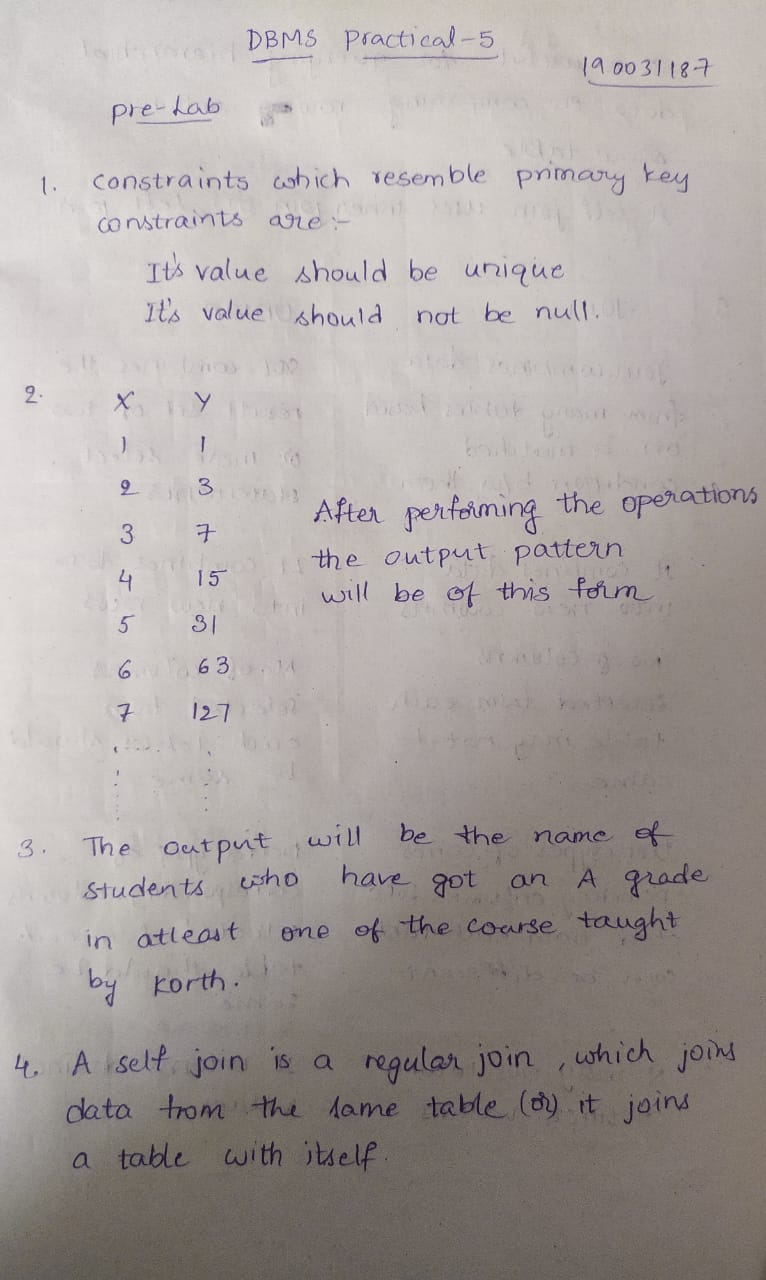 DBMS Practical-5
190031187
pre-Lab
1. constraints which resemble primary key
constraints are :-
It's value should be unique
It's value should not be null.
2. X Y
1 1
2 3
3 7
4 15
5 31
6 63
7 127
After performing the operations
the output pattern
will be of this form
3. The output will be the name of
students who have got an A grade
in atleast one of the course taught
by Korth.
4. A self join is a regular join , which joins
data from the same table (or) it joins
a table with itself.